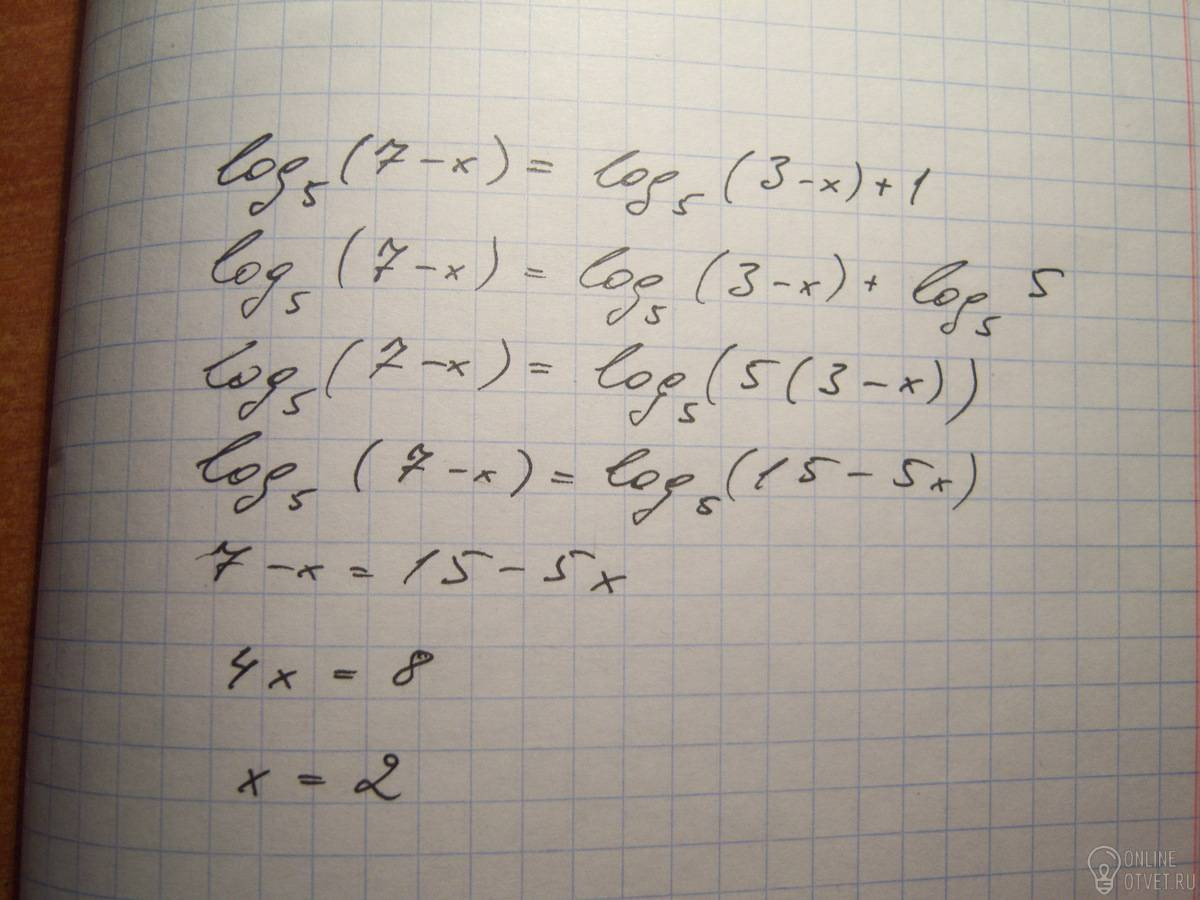 log₅(7-x) = log₅(3-x)+1
log₅(7-x) = log₅(3-x)+ log₅5
log₅(7-x) = log₅(5(3-x))
log₅(7-x) = log₅(15-5x)
7-x = 15-5x
4x = 8
x = 2
ONLINE
OTVET.RU